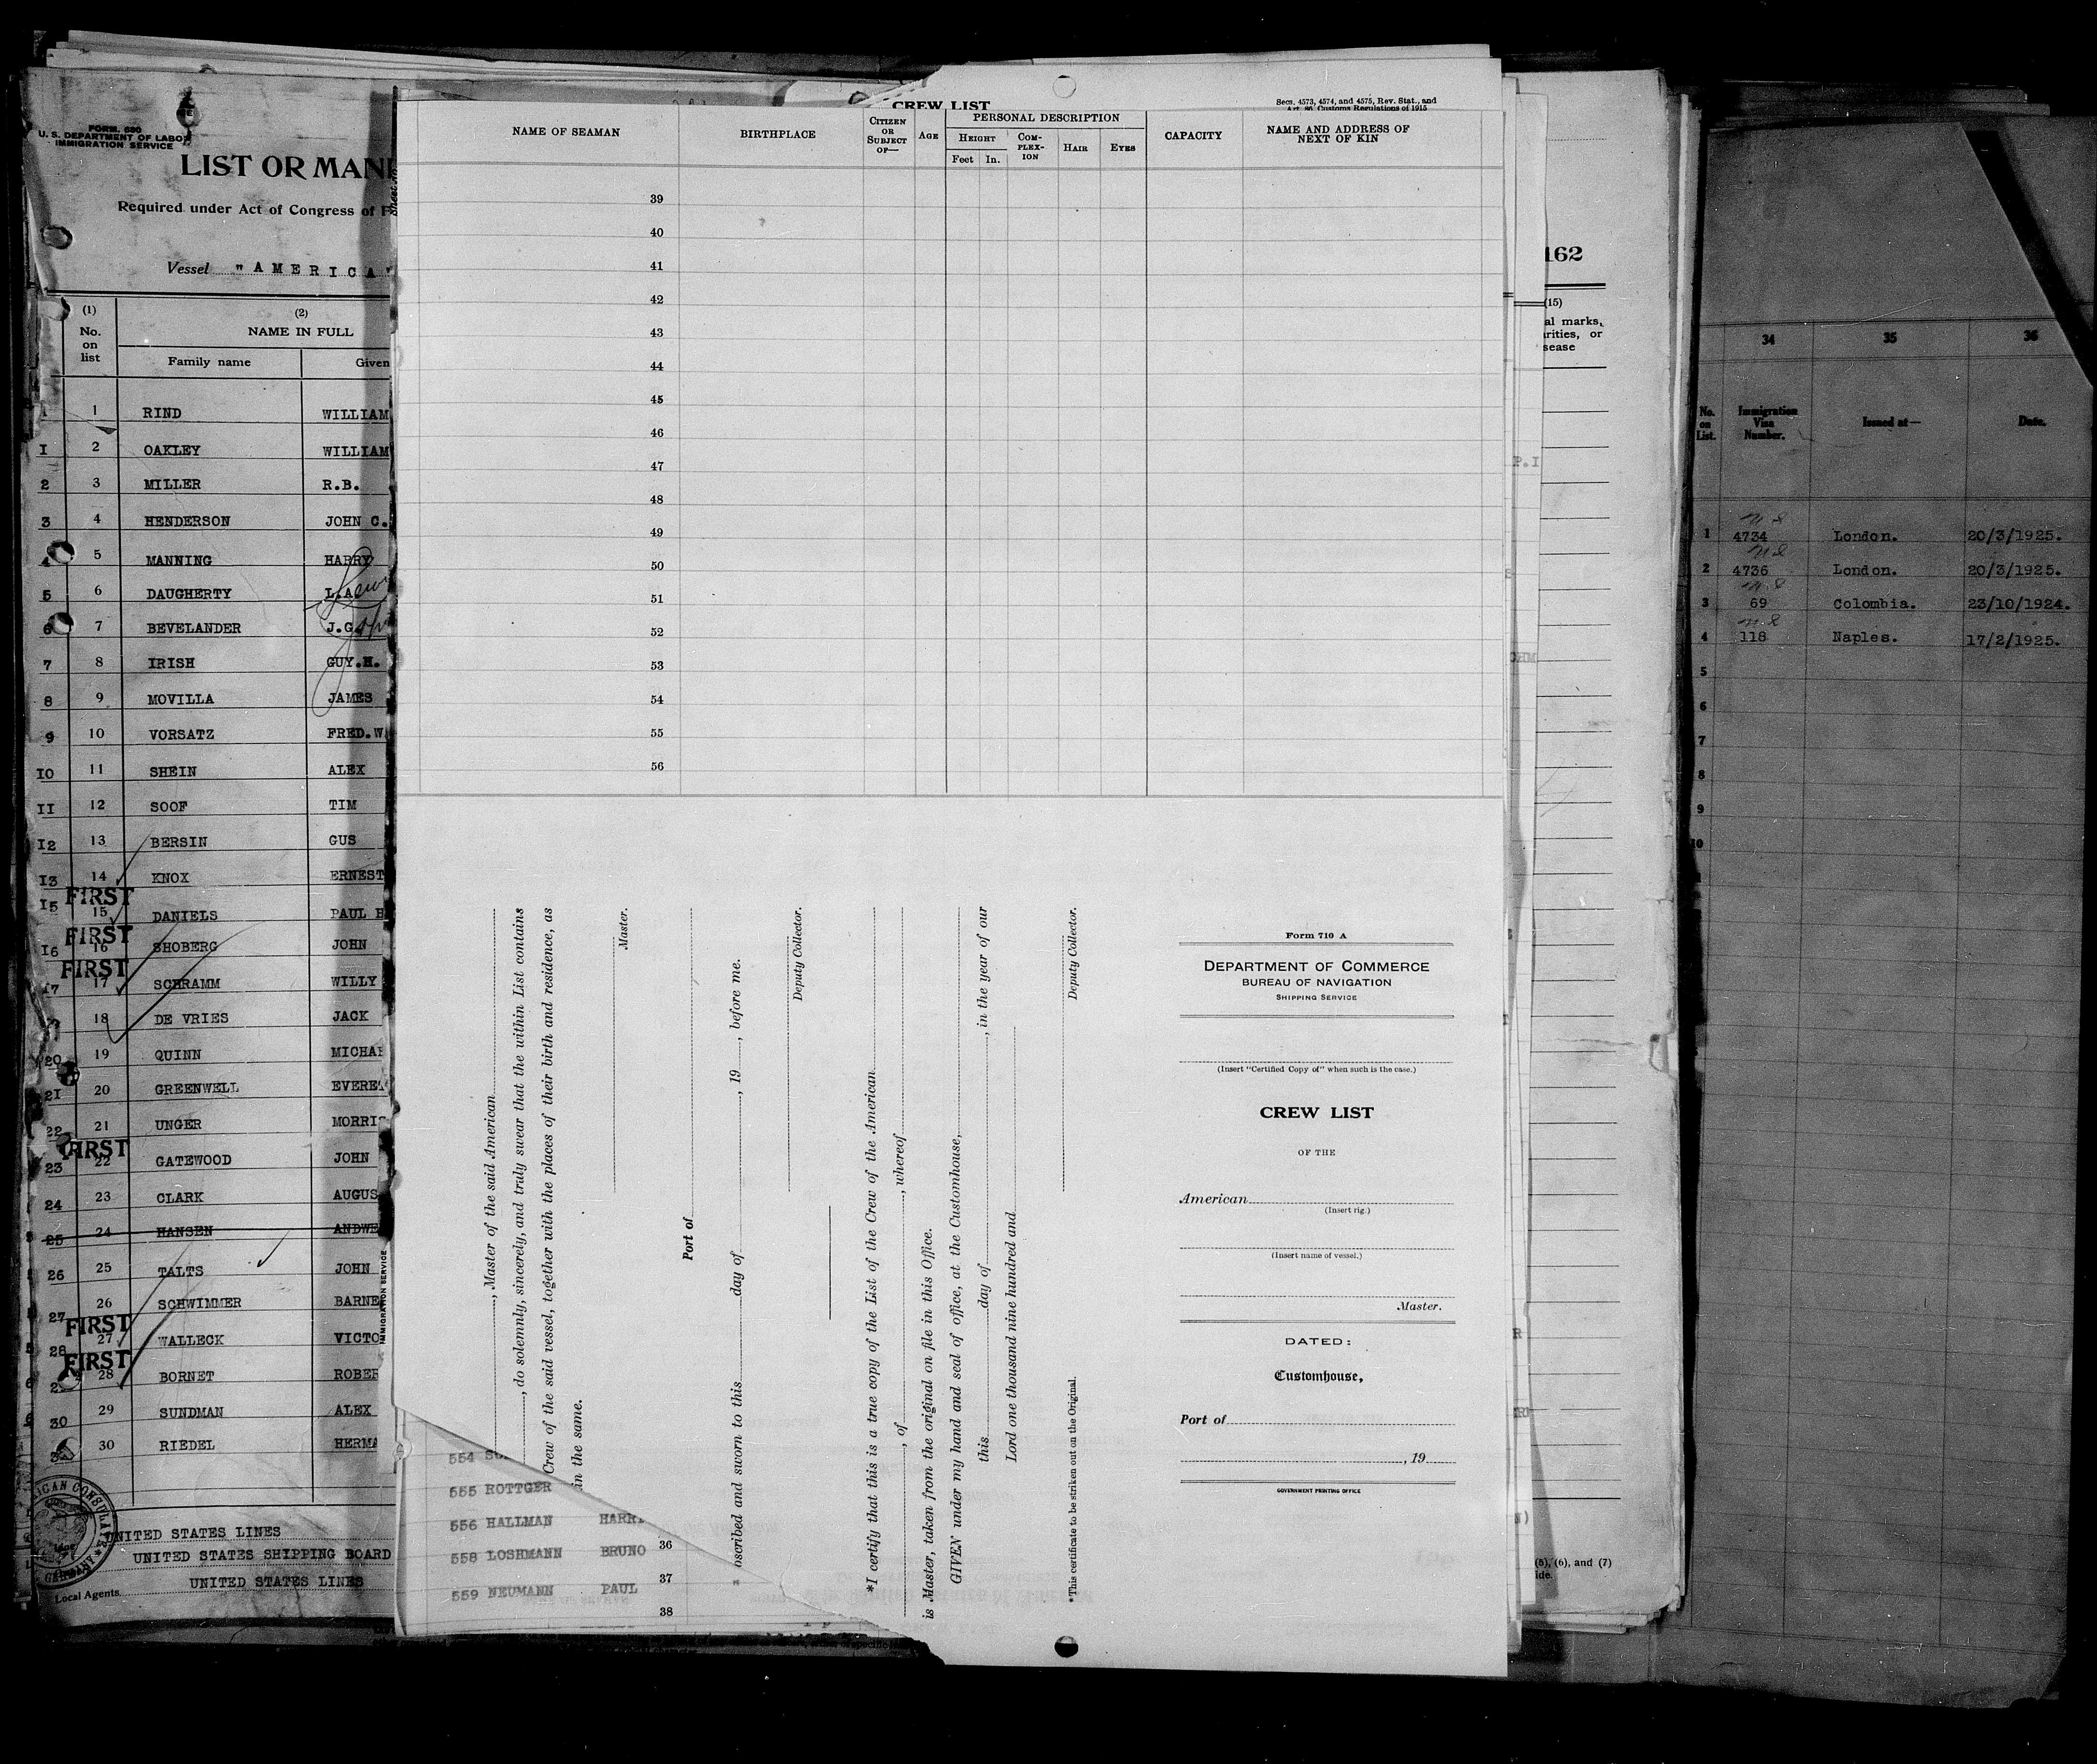 FORM. 680
U. S. DEPARTMENT OF LABOR
IMMIGRATION SERVICE
LIST OR MAN
Required under Act of Congress of
Vessel "AMERICA"
(1) (2)
No. on list NAME IN FULL
Family name Given
1 RIND WILLIAM
1 2 OAKLEY WILLIAM
2 3 MILLER R.B.
3 4 HENDERSON JOHN C.
4 5 MANNING HARRY
5 6 DAUGHERTY L.A.
6 7 BEVELANDER J.G.
7 8 IRISH GUY.H.
8 9 MOVILLA JAMES
9 10 VORSATZ FRED.W.
IO 11 SHEIN ALEX
II 12 SOOF TIM
I2 13 BERSIN GUS
I3 14 KNOX ERNEST
FIRST
I5 15 DANIELS PAUL H
FIRST
I6 16 SHOBERG JOHN
FIRST
I7 17 SCHRAMM WILLY
18 DE VRIES JACK
20 19 QUINN MICHAE
2I 20 GREENWELL EVERE
22 21 UNGER MORRIS
FIRST
23 22 GATEWOOD JOHN
24 23 CLARK AUGUS
25 24 HANSEN ANDWE
26 25 TALTS JOHN
26 SCHWIMMER BARNE
27 FIRST
27 WALLECK VICTO
28 FIRST
28 BORNET ROBER
29 SUNDMAN ALEX
30
30 RIEDEL HERMA
UNITED STATES LINES
UNITED STATES SHIPPING BOARD
UNITED STATES LINES
Local Agents
IMMIGRATION SERVICE
CREW LIST
Secs. 4573, 4574, and 4575, Rev. Stat., and
Art. 86, Customs Regulations of 1915
NAME OF SEAMAN BIRTHPLACE CITIZEN OR SUBJECT OF— AGE PERSONAL DESCRIPTION CAPACITY NAME AND ADDRESS OF NEXT OF KIN
HEIGHT COM-PLEX-ION HAIR EYES
Feet In.
39
40
41
42
43
44
45
46
47
48
49
50
51
52
53
54
55
56
, Master of the said American
, do solemnly, sincerely, and truly swear that the within List contains
Crew of the said vessel, together with the places of their birth and residence, as
in the same.
Master.
Port of
scribed and sworn to this day of , 19 , before me.
Deputy Collector.
*I certify that this is a true copy of the List of the Crew of the American
, of , whereof
is Master, taken from the original on file in this Office.
GIVEN under my hand and seal of office, at the Customhouse,
this day of , in the year of our
Lord one thousand nine hundred and
Deputy Collector.
*This certificate to be striken out on the Original.
Form 710 A
DEPARTMENT OF COMMERCE
BUREAU OF NAVIGATION
SHIPPING SERVICE
(Insert "Certified Copy of" when such is the case.)
CREW LIST
OF THE
American
(Insert rig.)
(Insert name of vessel.)
Master.
DATED:
Customhouse,
Port of
, 19
GOVERNMENT PRINTING OFFICE
554
555 ROTTGER
556 HALLMAN HARRY
36
558 LOSHMANN BRUNO
37
559 NEUMANN PAUL
38
162
(15)
al marks,
arities, or
sease
P.I
(5), (6), and (7)
ide.
34 35 36
No. on List. Immigration Visa Number. Issued at— Date.
1 4734 London. 20/3/1925.
2 4736 London. 20/3/1925.
3 69 Colombia. 23/10/1924.
4 118 Naples. 17/2/1925.
5
6
7
8
9
10